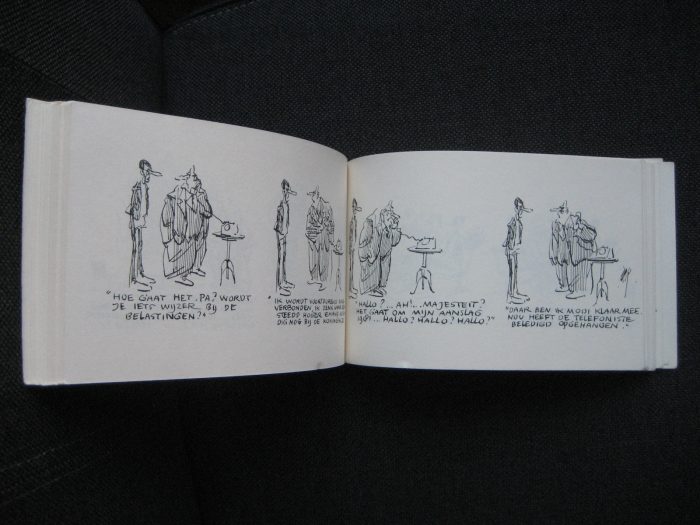 "HOE GAAT HET, PA? WORDT
JE IETS WIJZER BIJ DE
BELASTINGEN?"
"IK WORDT VOORTDUREND
VERBONDEN. IK
STEEDS HOGER.
DIG NOG BIJ DE
"HALLO?... AH!... MAJESTEIT?
HET GAAT OM MIJN AANSLAG
HALLO? HALLO? HALLO?"
"DAAR BEN IK MOOI KLAAR MEE.
NOU HEEFT DE TELEFONISTE
BELEDIGD OPGEHANGEN."